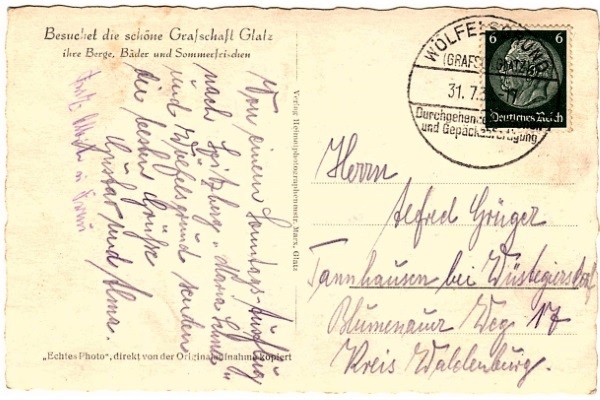 Besuchet die schöne Grafschaft Glatz
ihre Berge, Bäder und Sommerfrischen
Von einem Sonntags-Ausflug
nach Spitzberg, "Maria Schnee"
und Wölfelsgrund senden
die besten Grüße
Gustav und Alma.
Verlag Heimatphotographenmstr. Marx, Glatz
WÖLFELSGRUND
(GRAFSCH. GLATZ)
31. 7.
Durchgehende
und Gepäckabfertigung
6 6
Deutsches Reich
Herrn
Alfred Grüger
Tannhausen bei Wüstegiersdorf
Blumenauer Weg 17
Kreis Waldenburg.
„Echtes Photo", direkt von der Originalaufnahme kopiert